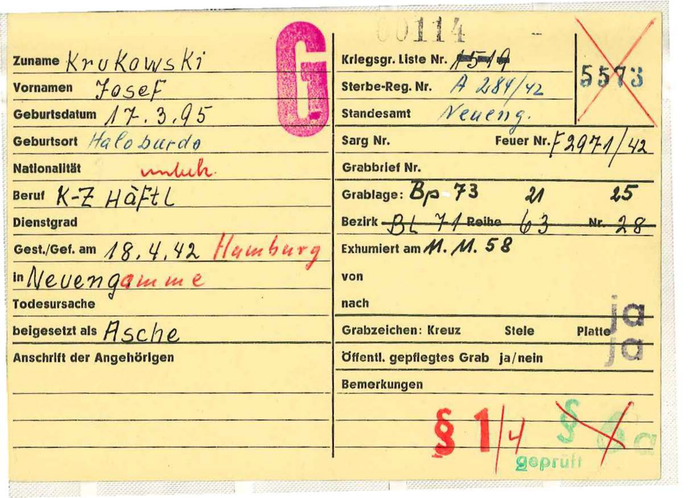 00114
G
Zuname Krukowski
Vornamen Josef
Geburtsdatum 17.3.95
Geburtsort Haloburdo
Nationalität unbek.
Beruf K-Z Häftl
Dienstgrad
Gest./Gef. am 18.4.42 Hamburg
in Neuengamme
Todesursache
beigesetzt als Asche
Anschrift der Angehörigen
Kriegsgr. Liste Nr.
5573
Sterbe-Reg. Nr. A 284/42
Standesamt Neueng.
Sarg Nr. Feuer Nr. F2971/42
Grabbrief Nr.
Grablage: Bp 73 21 25
Bezirk Bl 71 Reihe 63 Nr. 28
Exhumiert am 11.11.58
von
nach
ja
Grabzeichen: Kreuz Stele Platte
Öffentl. gepflegtes Grab ja/nein ja
Bemerkungen
§ 1/4 § 6a
geprüft